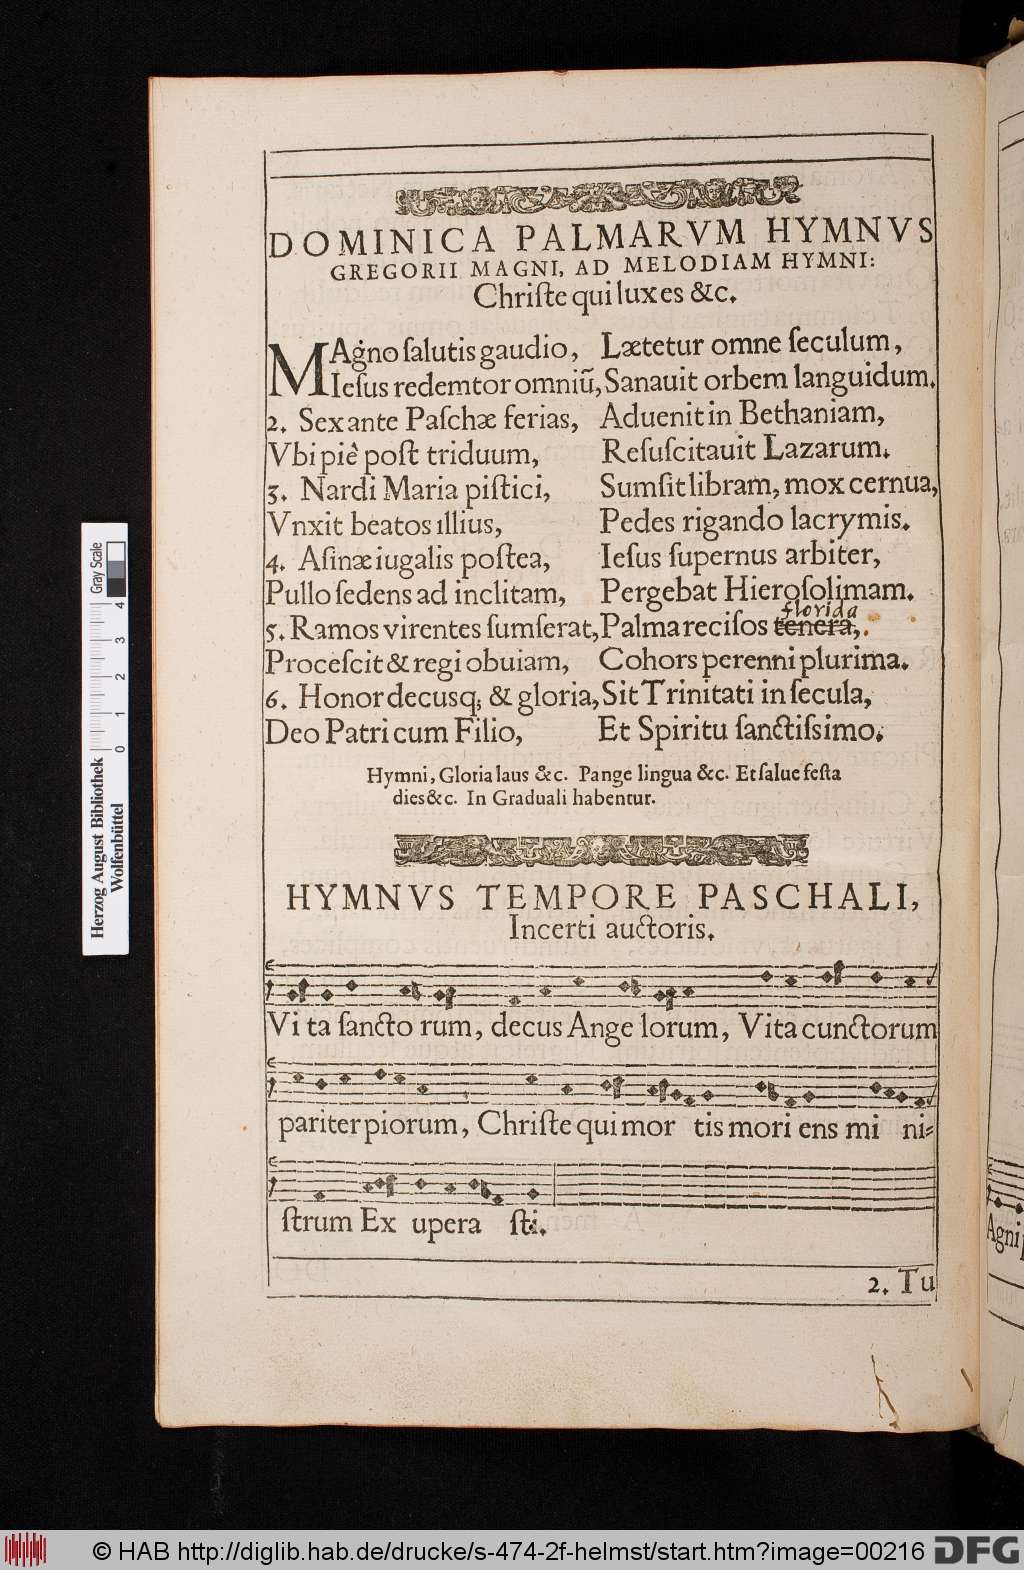 DOMINICA PALMARVM HYMNVS
GREGORII MAGNI, AD MELODIAM HYMNI:
Chriſte qui lux es &c.
MAgno ſalutis gaudio, Lætetur omne ſeculum,
Ieſus redemtor omniũ, Sanauit orbem languidum.
2. Sex ante Paſchæ ferias, Aduenit in Bethaniam,
Vbi piè poſt triduum, Reſuſcitauit Lazarum.
3. Nardi Maria piſtici, Sumſit libram, mox cernua,
Vnxit beatos illius, Pedes rigando lacrymis.
4. Aſinæ iugalis poſtea, Ieſus ſupernus arbiter,
Pullo ſedens ad inclitam, Pergebat Hieroſolimam.
florida
5. Ramos virentes ſumſerat, Palma reciſos tenera,
Proceſcit & regi obuiam, Cohors perenni plurima.
6. Honor decusq; & gloria, Sit Trinitati in ſecula,
Deo Patri cum Filio, Et Spiritu ſanctiſsimo.
Hymni, Gloria laus &c. Pange lingua &c. Et ſalue feſta
dies &c. In Graduali habentur.
HYMNVS TEMPORE PASCHALI,
Incerti auctoris.
Vi ta ſancto rum, decus Ange lorum, Vita cunctorum
pariter piorum, Chriſte qui mor tis mori ens mi ni-
ſtrum Ex upera ſti.
2. Tu
Agni
Herzog August Bibliothek
Wolfenbüttel
0 1 2 3 4
Gray Scale
© HAB http://diglib.hab.de/drucke/s-474-2f-helmst/start.htm?image=00216
DFG